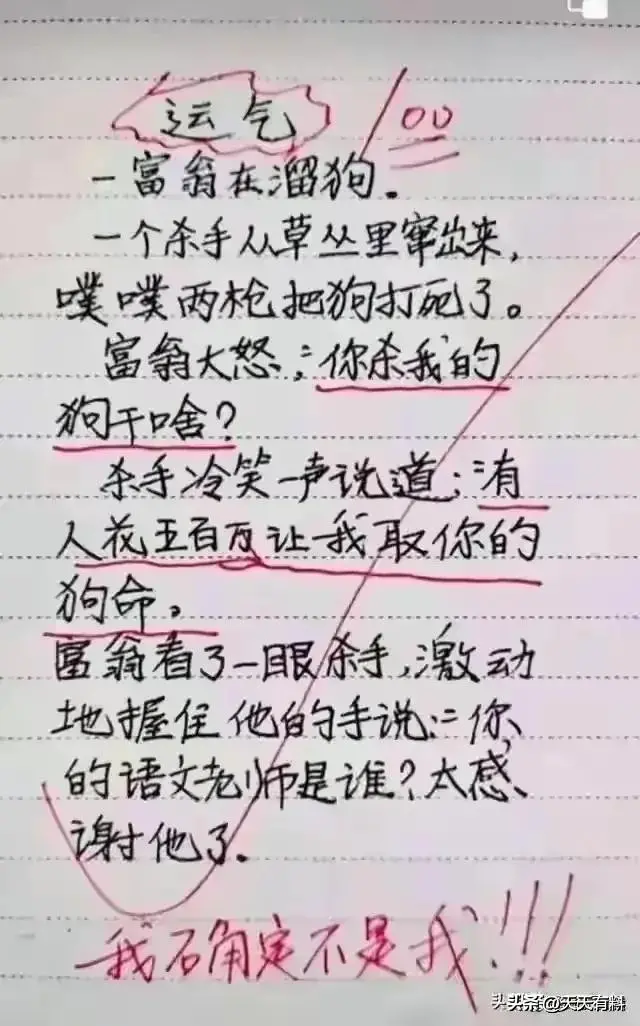 运气
100
一富翁在溜狗。
一个杀手从草丛里窜出来,
噗噗两枪把狗打死了。
富翁大怒:“你杀我的
狗干啥?
杀手冷笑一声说道:“有
人花五百万让我取你的
狗命。
富翁看了一眼杀手,激动
地握住他的手说:“你
的语文老师是谁?太感
谢他了.
我石角定不是我!!!
头条 @天天有料